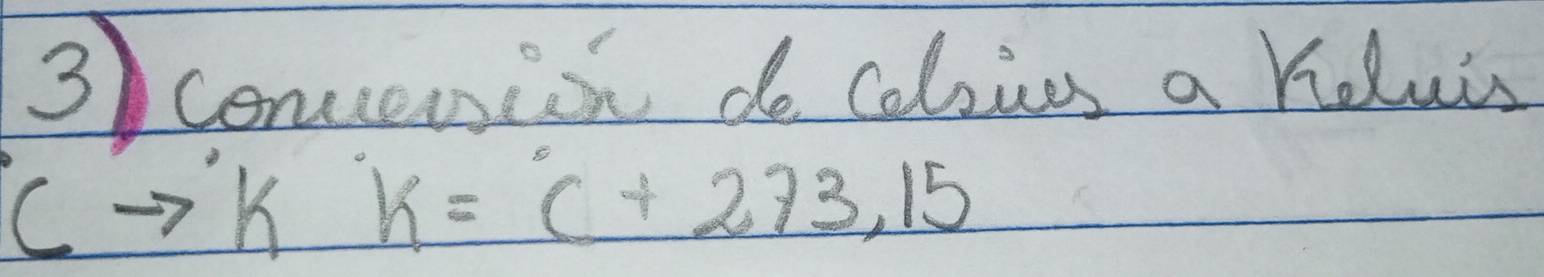 3) Conversión de Celsius a Kelvis
°C → °K °K = °C + 273,15